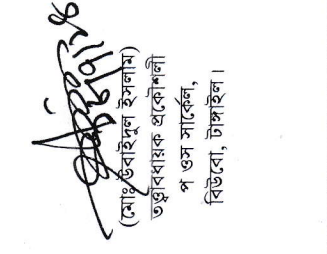 (মোঃ উবাইদুল ইসলাম)
তত্ত্বাবধায়ক প্রকৌশলী
প ওস সার্কেল,
বিউবো, টাঙ্গাইল।